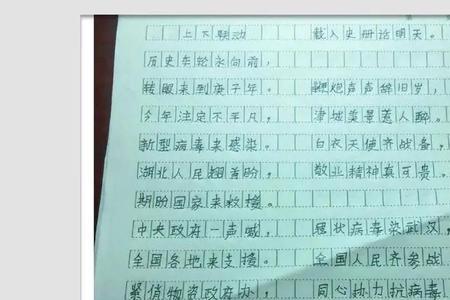 上下联动 载入史册话明天。
历史车轮永向前，
转眼来到庚子年。 鞭炮声声辞旧岁，
今年注定不平凡， 津城美景惹人醉。
新型病毒来感染。 白衣天使齐战备，
湖北人民翘首盼， 敬业精神真可贵。
期盼国家来救援。
中央政府一声喊， 冠状病毒染武汉，
全国各地来支援。 全国人民齐参战
紧俏物资政府办， 同心协力抗病毒，